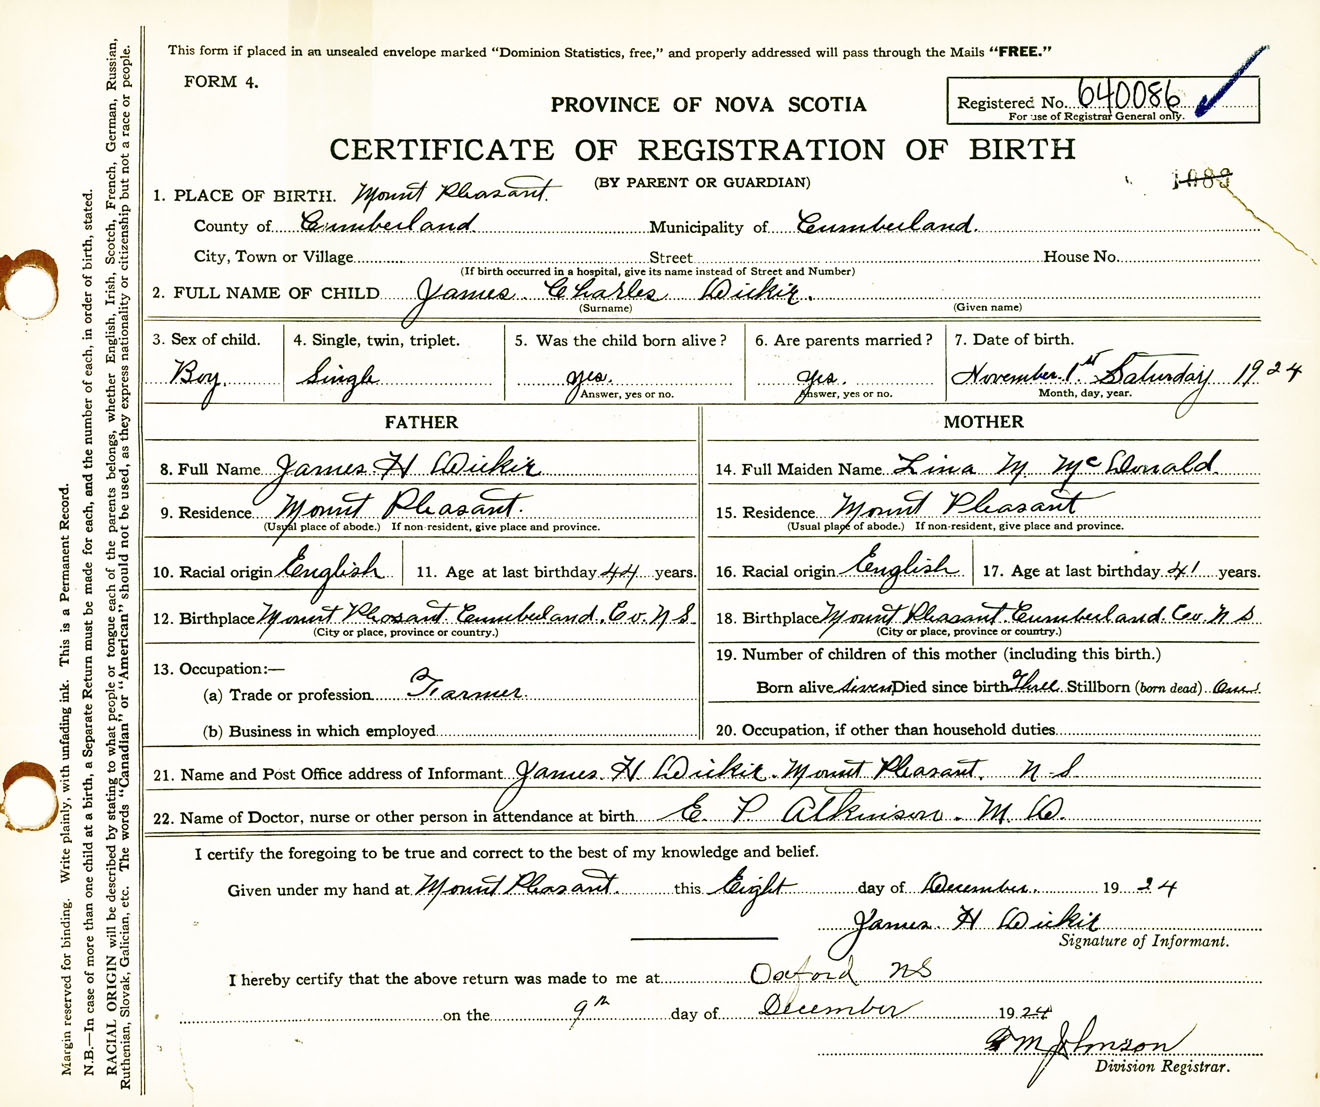 This form if placed in an unsealed envelope marked “Dominion Statistics, free,” and properly addressed will pass through the Mails “FREE.”
FORM 4.
Registered No. 640086
For use of Registrar General only.
PROVINCE OF NOVA SCOTIA
CERTIFICATE OF REGISTRATION OF BIRTH
(BY PARENT OR GUARDIAN)
1. PLACE OF BIRTH. Mount Pleasant.
County of Cumberland. Municipality of Cumberland.
City, Town or Village Street House No.
(If birth occurred in a hospital, give its name instead of Street and Number)
2. FULL NAME OF CHILD James Charles Dickie.
(Surname) (Given name)
3. Sex of child. 4. Single, twin, triplet. 5. Was the child born alive? 6. Are parents married? 7. Date of birth.
Boy. Single yes. yes. November 1st Saturday 1924
Answer, yes or no. Answer, yes or no. Month, day, year.
FATHER MOTHER
8. Full Name James H Dickie 14. Full Maiden Name Lina M McDonald
9. Residence Mount Pleasant. 15. Residence Mount Pleasant
(Usual place of abode.) If non-resident, give place and province. (Usual place of abode.) If non-resident, give place and province.
10. Racial origin English 11. Age at last birthday 44 years. 16. Racial origin English 17. Age at last birthday 41 years.
12. Birthplace Mount Pleasant Cumberland. Co. N S 18. Birthplace Mount Pleasant Cumberland. Co. N S
(City or place, province or country.) (City or place, province or country.)
13. Occupation:— 19. Number of children of this mother (including this birth.)
(a) Trade or profession Farmer. Born alive seven Died since birth Three Stillborn (born dead) One
(b) Business in which employed 20. Occupation, if other than household duties
21. Name and Post Office address of Informant James H Dickie. Mount Pleasant. N S
22. Name of Doctor, nurse or other person in attendance at birth E. P Atkinson. M. D.
I certify the foregoing to be true and correct to the best of my knowledge and belief.
Given under my hand at Mount Pleasant. this Eight day of December. 1924
James. H Dickie
Signature of Informant.
I hereby certify that the above return was made to me at Oxford NS
on the 9th day of December 1924
M Johnson
Division Registrar.
Margin reserved for binding. Write plainly, with unfading ink. This is a Permanent Record.
N.B.—In case of more than one child at a birth, a Separate Return must be made for each, and the number of each, in order of birth, stated.
RACIAL ORIGIN will be described by stating to what people or tongue each of the parents belongs, whether English, Irish, Scotch, French, German, Russian,
Ruthenian, Slovak, Galician, etc. The words “Canadian” or “American” should not be used, as they express nationality or citizenship but not a race or people.